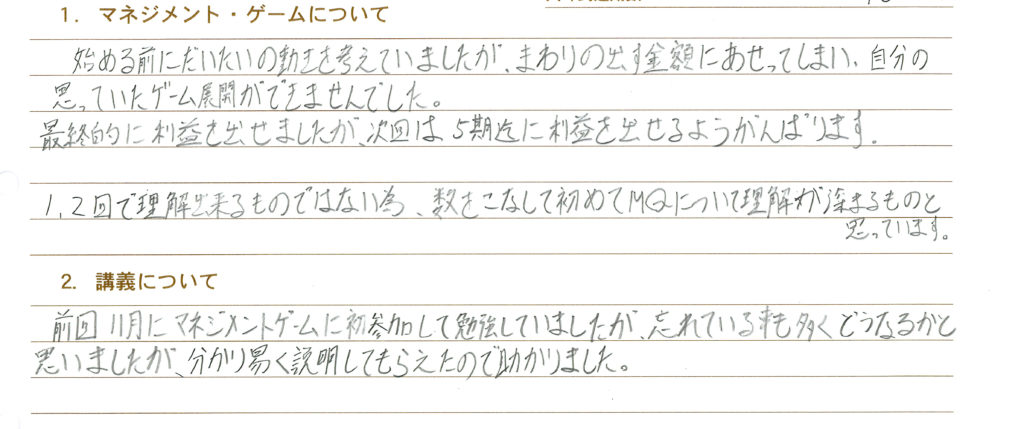 1. マネジメント・ゲームについて
始める前にだいたいの動きを考えていましたが、まわりの出す金額にあせってしまい、自分の
思っていたゲーム展開ができませんでした。
最終的に利益を出せましたが、次回は5期迄に利益を出せるようがんばります。
1、2回で理解出来るものではない為、数をこなして初めてMQについて理解が深まるものと
思っています。
2. 講義について
前回11月にマネジメントゲームに初参加して勉強していましたが、忘れている事も多くどうなるかと
思いましたが、分かり易く説明してもらえたので助かりました。